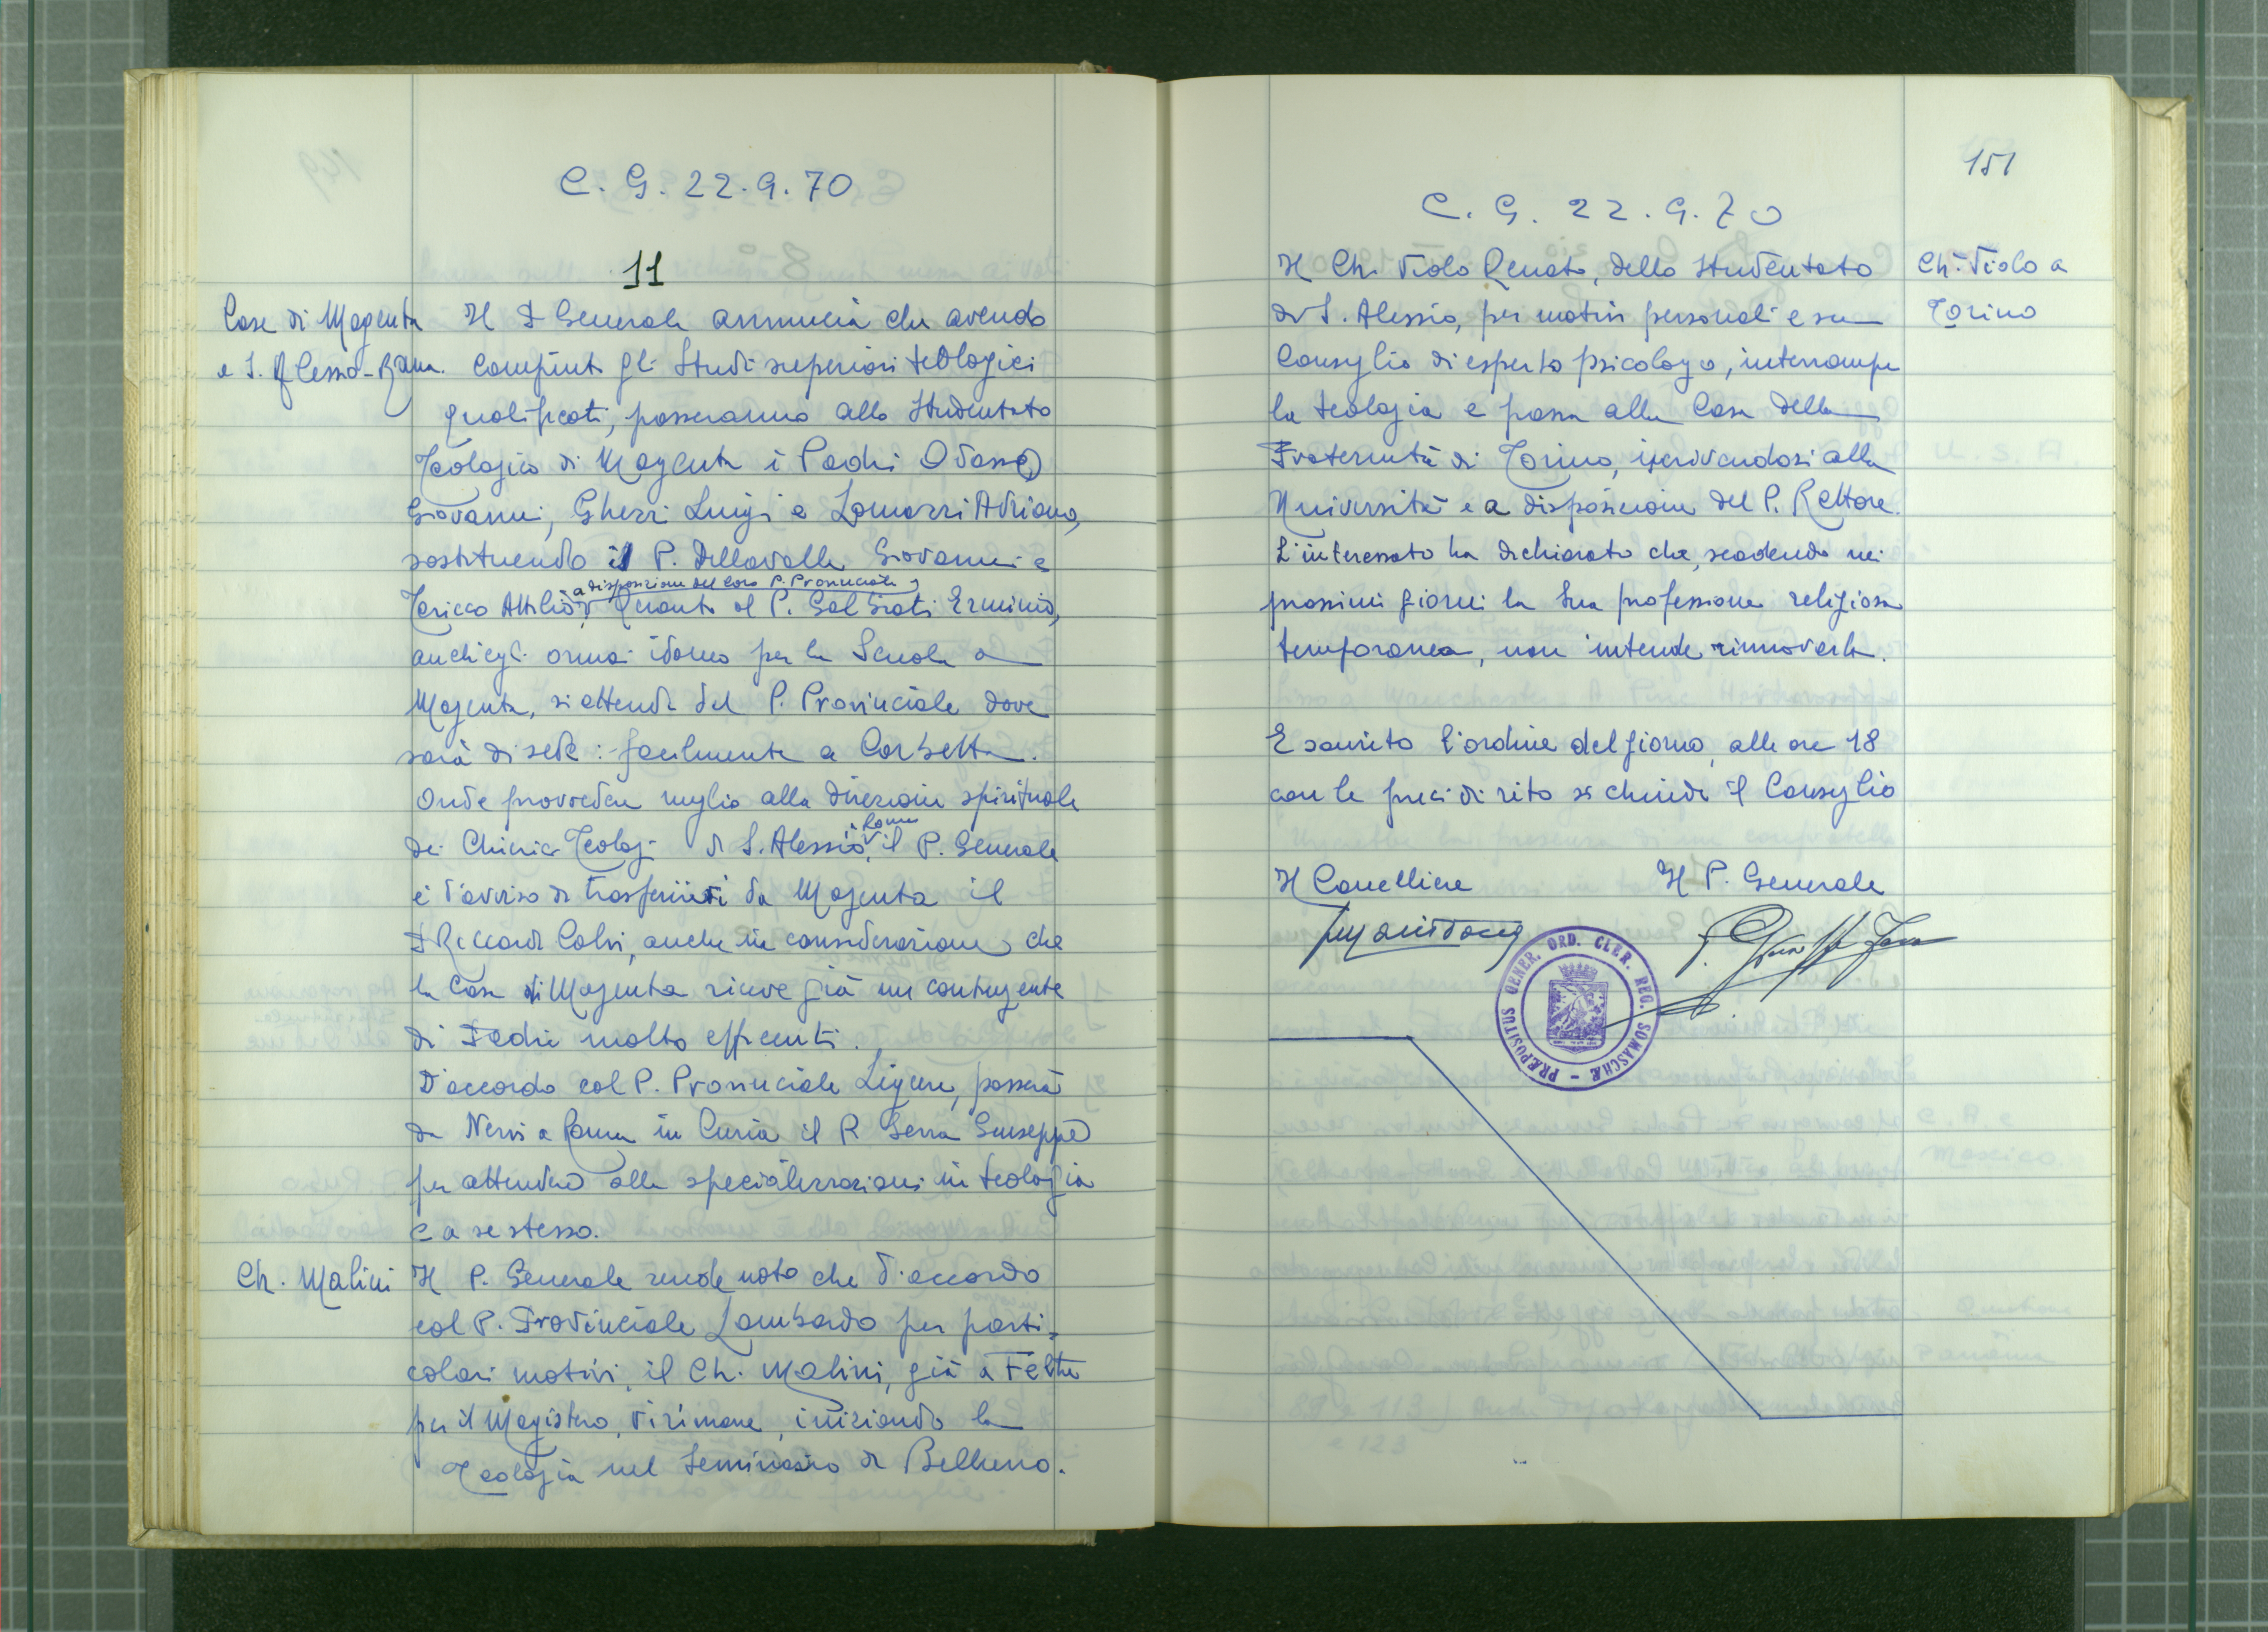 C. G. 22.9.70
11
Case di Magenta
e S. Alessio - Roma.
Il P Generale annuncia che avendo
compiuti gli Studi superiori teologici
qualificati, passeranno allo Studentato
Teologico di Magenta i Padri Odasso
Giovanni, Ghezzi Luigi e Lomazzi Adriano,
sostituendo il P. Dellavalle Giovanni e
a disposizione del loro P. Provinciale
Tericco Attilio, Quanto al P. Galfrati Erminio,
anch'egli ormai idoneo per la Scuola a
Magenta, si attende dal P. Provinciale dove
sarà di sede: facilmente a Corbetta.
Onde provvedere meglio alla direzione spirituale
a Roma
dei Chierici Teologi di S. Alessio, il P. Generale
è d'avviso di trasferirvi da Magenta il
P Riccardi Calvi, anche in considerazione che
la Casa di Magenta riceve già un contingente
di Padri molto efficienti.
D'accordo col P. Provinciale Ligure, passerà
da Nervi a Roma in Curia il P. Serra Giuseppe
per attendere alla specializzazioni in teologia
e a se stesso.
Ch. Malini
Il P. Generale rende noto che d'accordo
col P. Provinciale Lombardo per parti-
colari motivi, il Ch. Malini, già a Feltre
per il Magistero, vi rimane, iniziando la
Teologia nel Seminario di Belluno.
151
C. G. 22.9.70
Ch. Violo a
Torino
Il Ch. Violo Renato, dello Studentato
di S. Alessio, per motivi personali e su
Consiglio di esperto psicologo, interrompe
la teologia e passa alla Casa della
Fraternità di Torino, iscrivendosi alla
Università e a disposizione del P. Rettore.
L'interessato ha dichiarato che, scadendo nei
prossimi giorni la sua professione religiosa
temporanea, non intende rinnovarla.
Esaurito l'ordine del giorno, alle ore 18
con le preci di rito si chiude il Consiglio
Il Cancelliere
Il P. Generale
PRÆPOSITUS GENER. ORD. CLER. REG. SOMASCHÆ